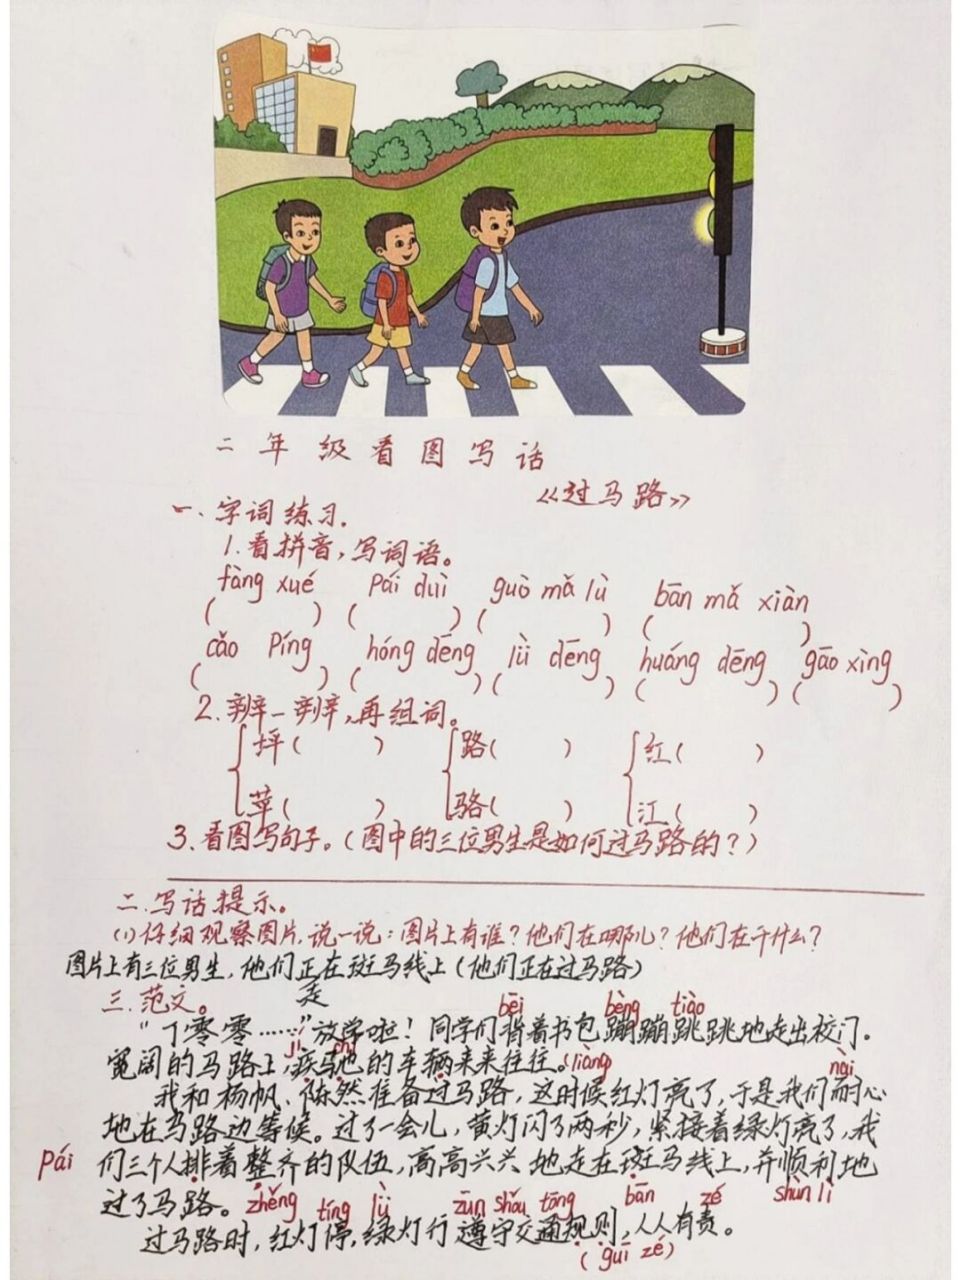 二年级看图写话
《过马路》
一、字词练习.
1.看拼音,写词语。
fàng xué pái duì guò mǎ lù bān mǎ xiàn
( ) ( ) ( ) ( )
cǎo píng hóng dēng lǜ dēng huáng dēng gāo xìng
( ) ( ) ( ) ( ) ( )
2.辨一辨,再组词。
坪( ) 路( ) 红( )
苹( ) 骆( ) 江( )
3、看图写句子。(图中的三位男生是如何过马路的?)
二、写话提示。
(1)仔细观察图片,说一说:图片上有谁?他们在哪儿?他们在干什么?
图片上有三位男生,他们正在斑马线上(他们正在过马路)
走
三、范文。
bēi bèng tiào
"丁零零……"放学啦!同学们背着书包蹦蹦跳跳地走出校门。
jí chí
宽阔的马路上,疾驰的车辆来来往往。(liang
nài
我和杨帆、陈然准备过马路,这时候红灯亮了,于是我们耐心
地在马路边等候。过了一会儿,黄灯闪了两秒,紧接着绿灯亮了,我
pái 们三个人排着整齐的队伍,高高兴兴地走在斑马线上,并顺利地
过了马路。zhěng tíng lǜ zūn shǒu tōng bān zé shùn lì
过马路时,红灯停,绿灯行遵守交通规则,人人有责。
(guī zé)